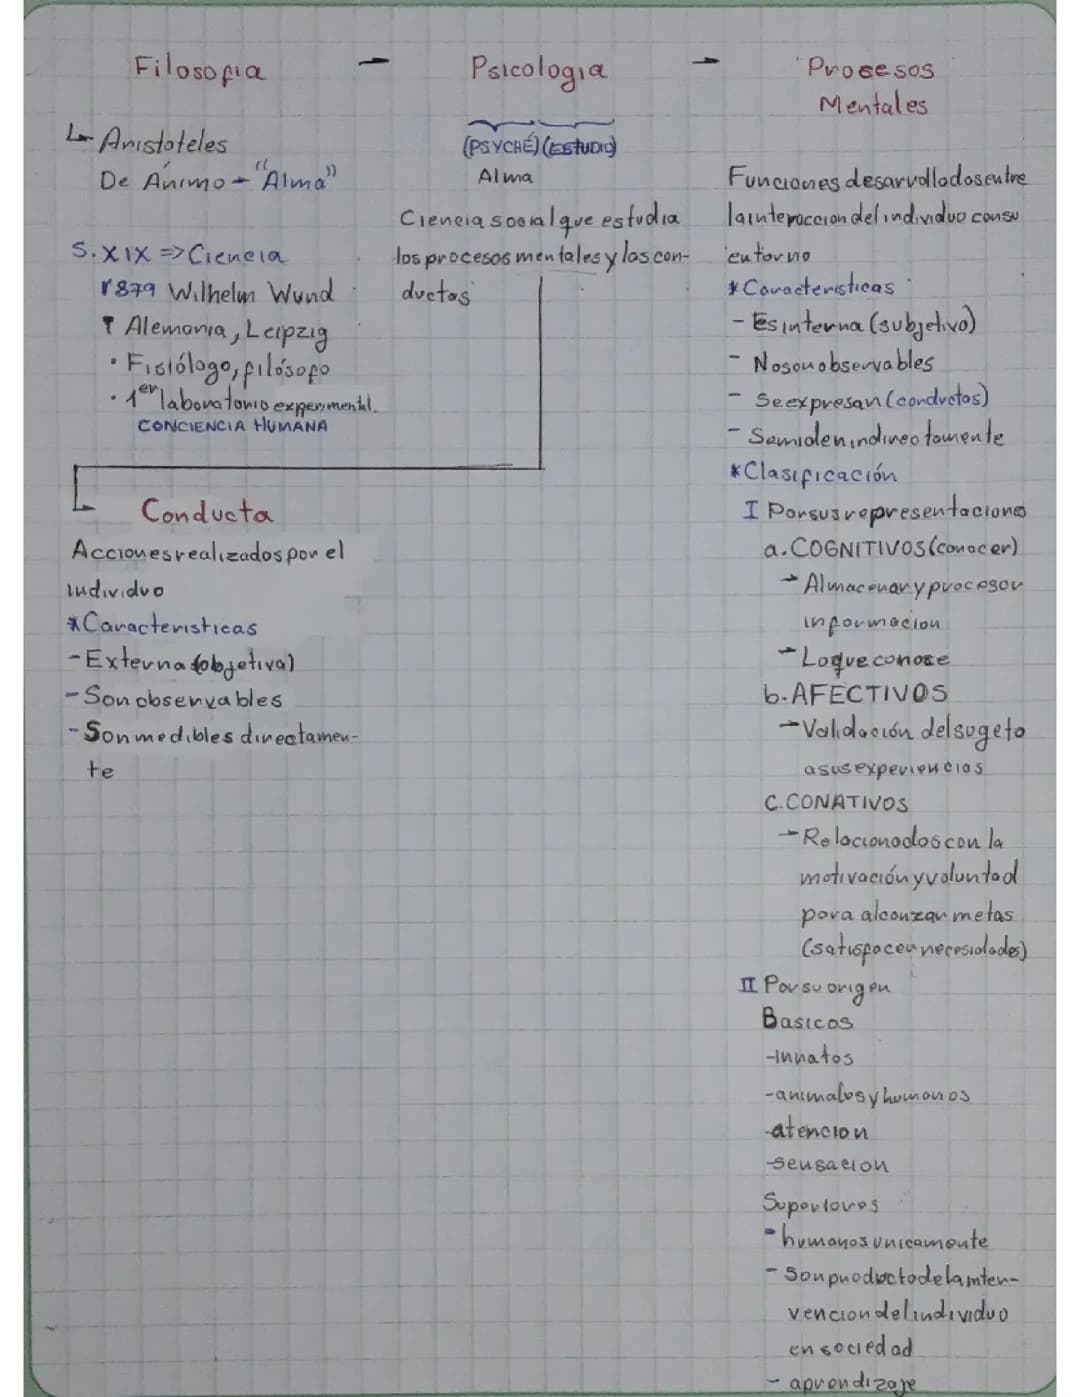 Filosofia - Psicologia - Procesos
Mentales
Aristoteles
De Ánimo - "Alma"
S. XIX => Ciencia
1879 Wilhelm Wund
Alemania, Leipzig
• Fisiólogo, filósofo
• 1er laboratorio experimental.
CONCIENCIA HUMANA
(PSYCHÉ) (ESTUDIO)
Alma
Ciencia social que estudia
los procesos mentales y las con-
ductas
Conducta
Acciones realizados por el
individuo
* Caracteristicas
- Externa (objetiva)
- Son observables
- Son medibles directamen-
te
Funciones desarrolladas entre
la interaccion del individuo con su
entorno
* Caracteristicas
- Es interna (subjetivo)
- No son observables
- Se expresan (conductas)
- Se miden indirectamente
* Clasificación
I Por sus representaciones
a. COGNITIVOS (conocer)
→ Almacenar y procesar
informacion
- Lo que conoce
b. AFECTIVOS
→ Validación del sugeto
a sus experiencias
C. CONATIVOS
→ Relacionados con la
motivación y voluntad
para alcanzar metas
(satisfacer necesidades)
II Por su origen
Basicos
- innatos
- animales y humanos
- atencion
- sensacion
Superiores
- humanos unicamente
- Son producto de la inter-
vencion del individuo
en sociedad
- aprendizaje